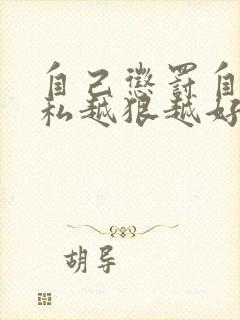 自己惩罚自
私越狠越好
胡导